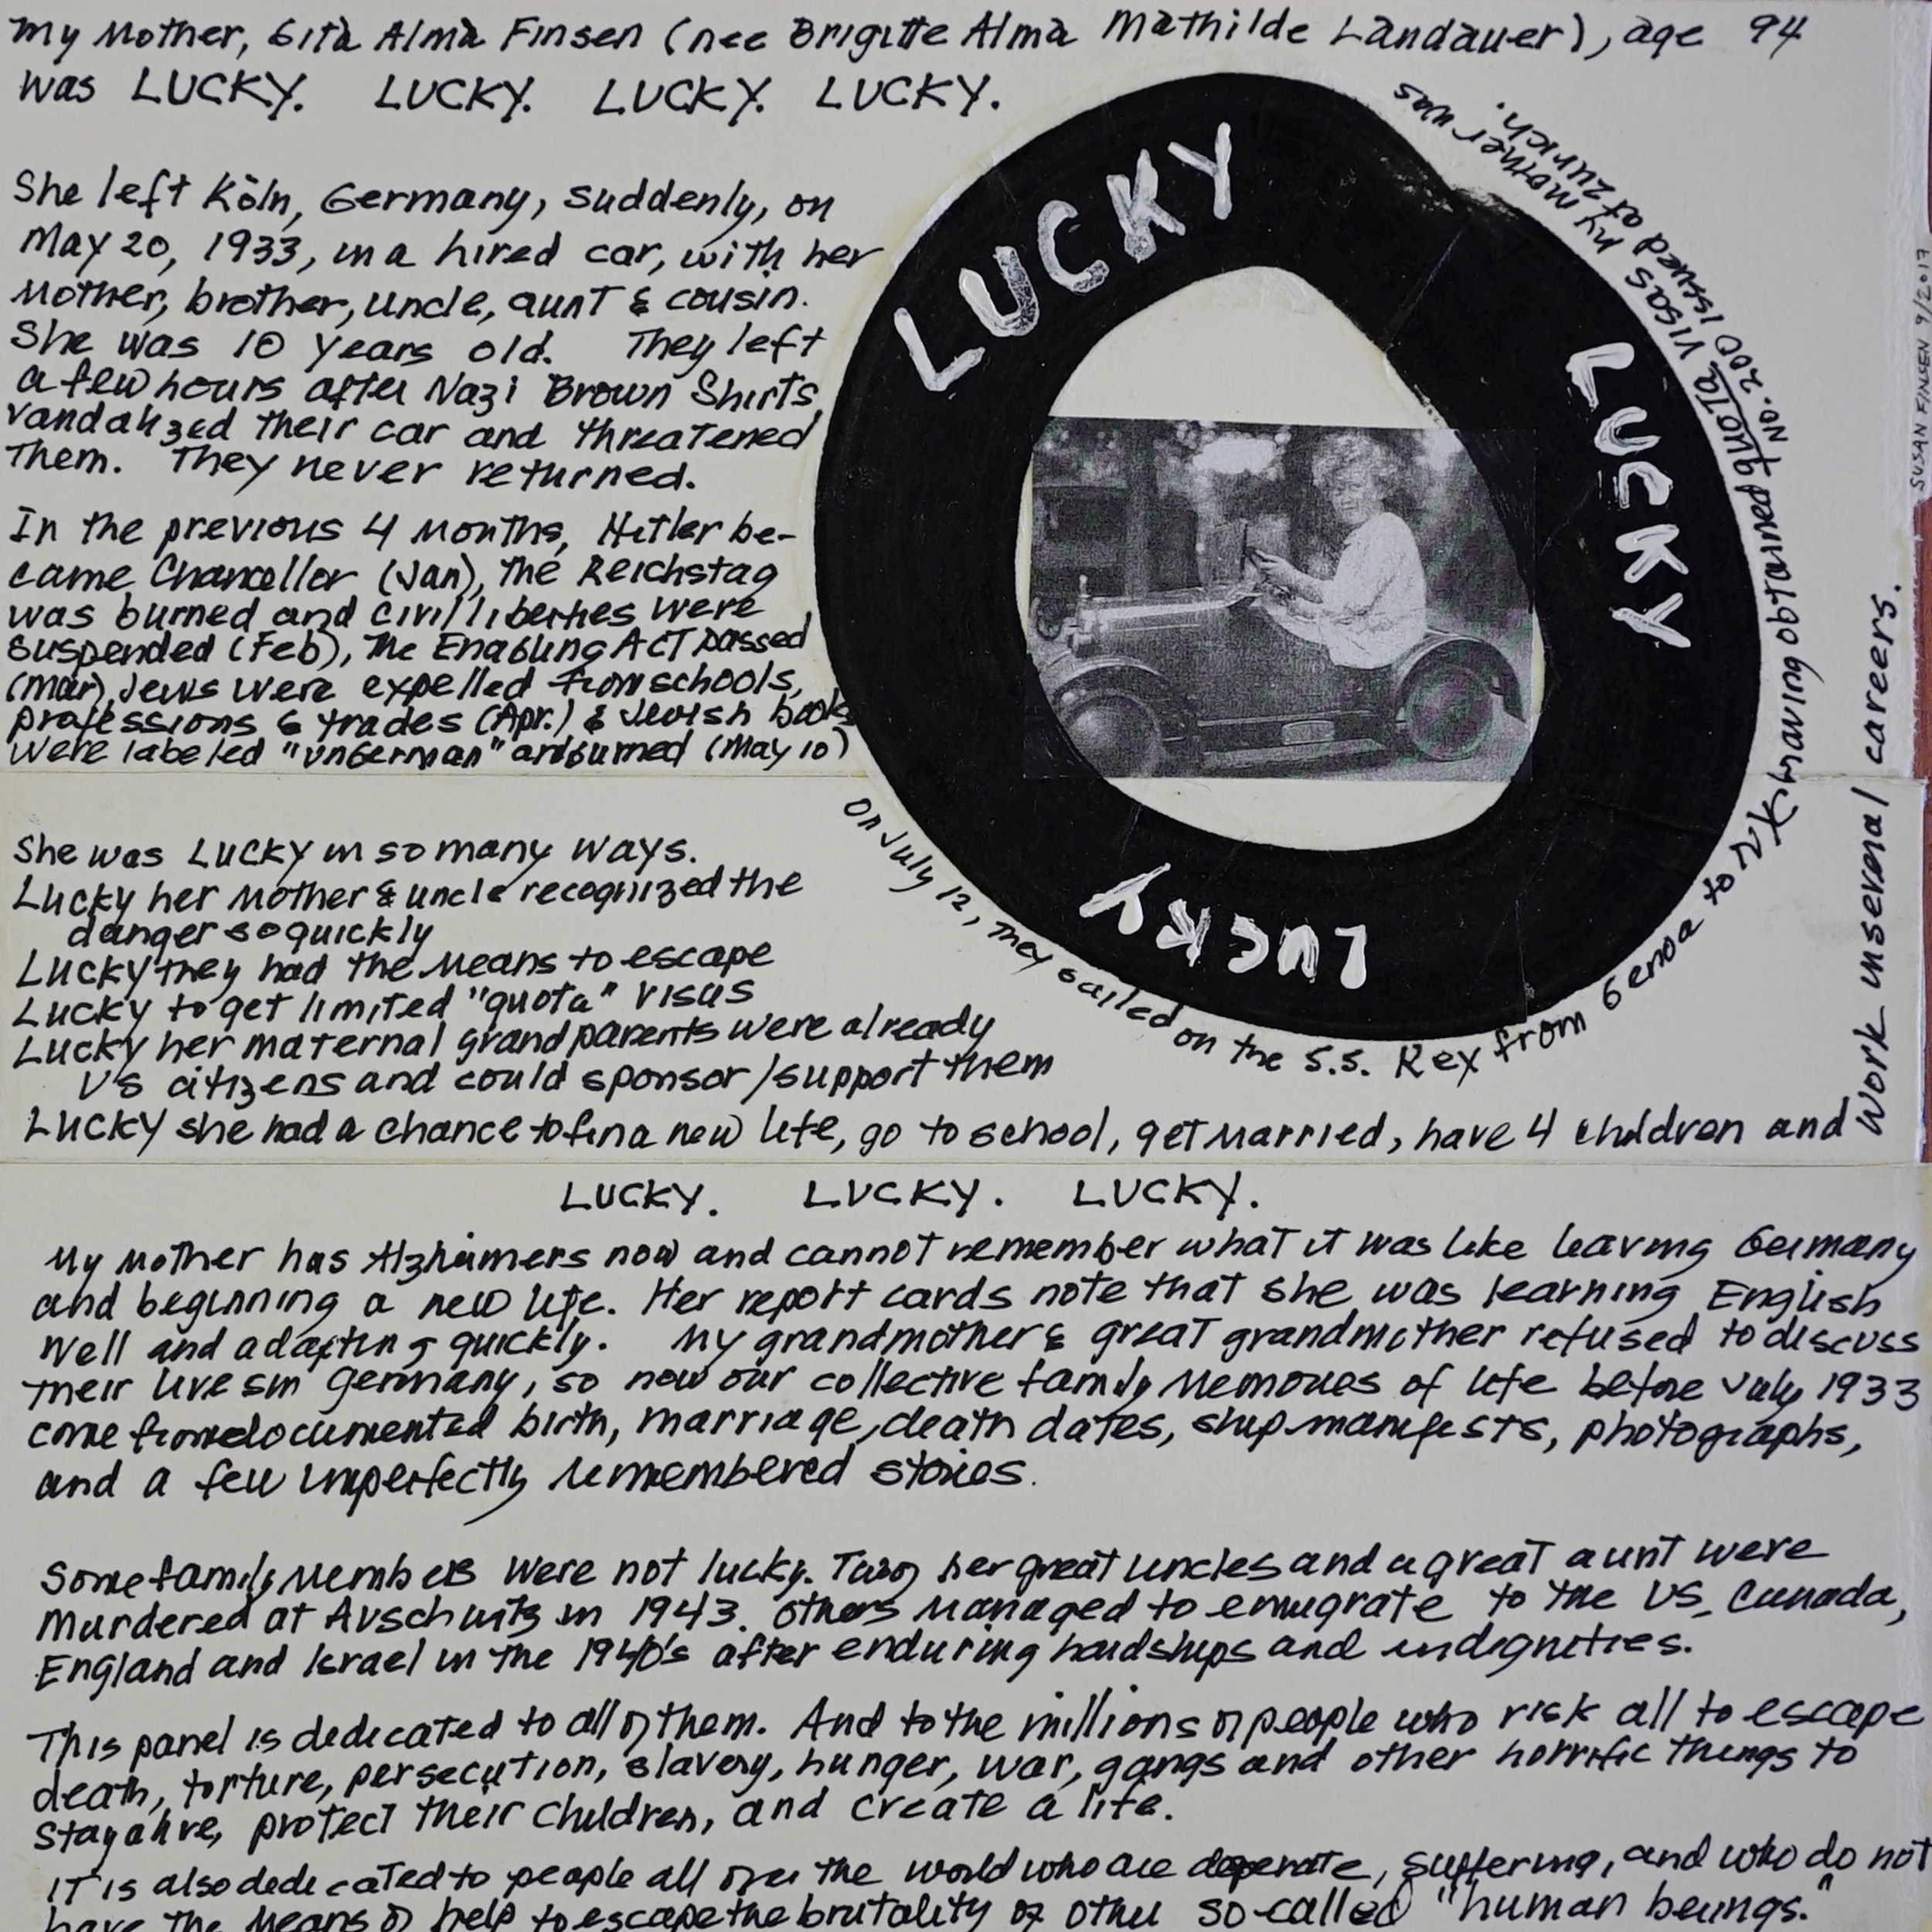 My Mother, Gita Alma Finsen (nee Brigitte Alma Mathilde Landauer), age 94
was LUCKY. LUCKY. LUCKY. LUCKY.
She left Köln, Germany, suddenly, on
May 20, 1933, in a hired car, with her
Mother, brother, uncle, aunt & cousin.
She was 10 years old. They left
a few hours after Nazi Brown Shirts
vandalized their car and threatened
them. They never returned.
In the previous 4 months, Hitler be-
came Chancellor (Jan), the Reichstag
was burned and civil liberties were
suspended (Feb), The Enabling ACT passed
(Mar), Jews were expelled from schools,
professions & trades (Apr.) & Jewish books
were labeled "unGerman" and burned (May 10)
LUCKY
LUCKY
LUCKY
On July 12, they sailed on the S.S. Rex from Genoa to NY having obtained quota visas my mother was
No. 200 issued at Zurich.
SUSAN FINSEN 9/2017
She was LUCKY in so many ways.
Lucky her Mother & uncle recognized the
danger so quickly
Lucky they had the means to escape
Lucky to get limited "quota" visas
Lucky her maternal grandparents were already
US citizens and could sponsor/support them
LUCKY she had a chance to find a new life, go to school, get married, have 4 children and
work in several careers.
LUCKY. LUCKY. LUCKY.
My Mother has Alzheimers now and cannot remember what it was like leaving Germany
and beginning a new life. Her report cards note that she was learning English
well and adapting quickly. My grandmother & great grandmother refused to discuss
their lives in Germany, so now our collective family memories of life before July 1933
come from documented birth, marriage, death dates, ship manifests, photographs,
and a few imperfectly remembered stories.
Some family members were not lucky. Two of her great uncles and a great aunt were
murdered at Auschwitz in 1943. Others managed to emigrate to the US, Canada,
England and Israel in the 1940's after enduring hardships and indignities.
This panel is dedicated to all of them. And to the millions of people who risk all to escape
death, torture, persecution, slavery, hunger, war, gangs and other horrific things to
stay alive, protect their children, and create a life.
IT is also dedicated to people all over the world who are desperate, suffering, and who do not
have the means or help to escape the brutality of other so-called "human beings."